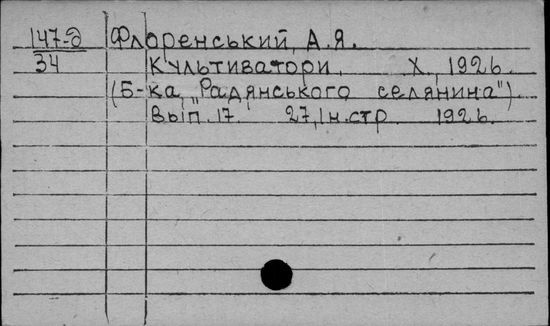 147-д Флоренський, А.Я.
34 Культиватори. Х., 1926.
(Б-ка „Радянського селянина").
Вып. 17. 27, Ін.стр. 1926.